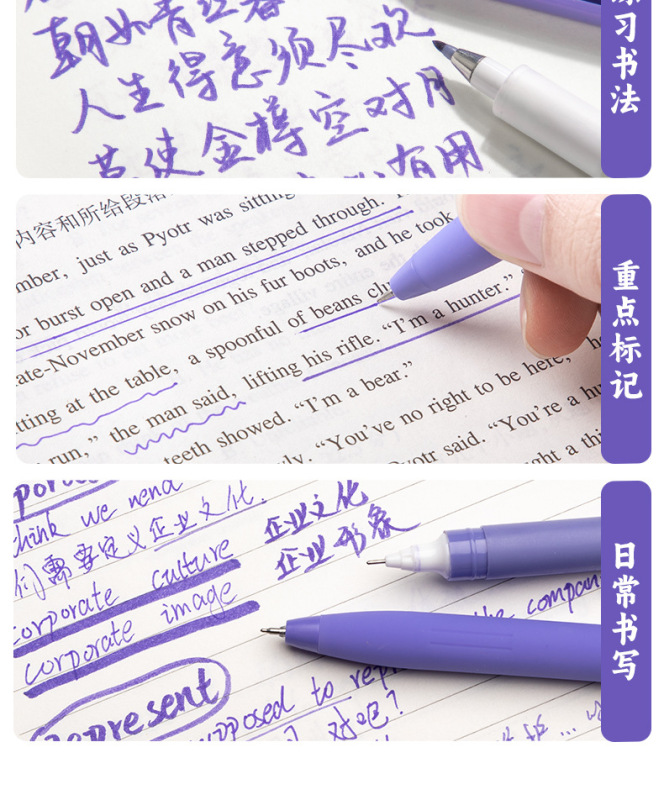 朝如青丝暮
人生得意须尽欢
莫使金樽空对月
有用
习书法
内容和所给段落
just as Pyotr was sitting
or burst open and a man stepped through.
mber,
ate-November snow on his fur boots, and he took
tting at the table, a spoonful of beans clu
run," the man said, lifting his rifle. "I'm a hunter."
teeth showed. "I'm a bear."
"You've no right to be here,
Pyotr said. "You're a hu
重点标记
think we need
们需要定义企业文化.
企业文化
企业形象
corporate culture
corporate image
represent
supposed to rep
the compan
对吧?
日常书写